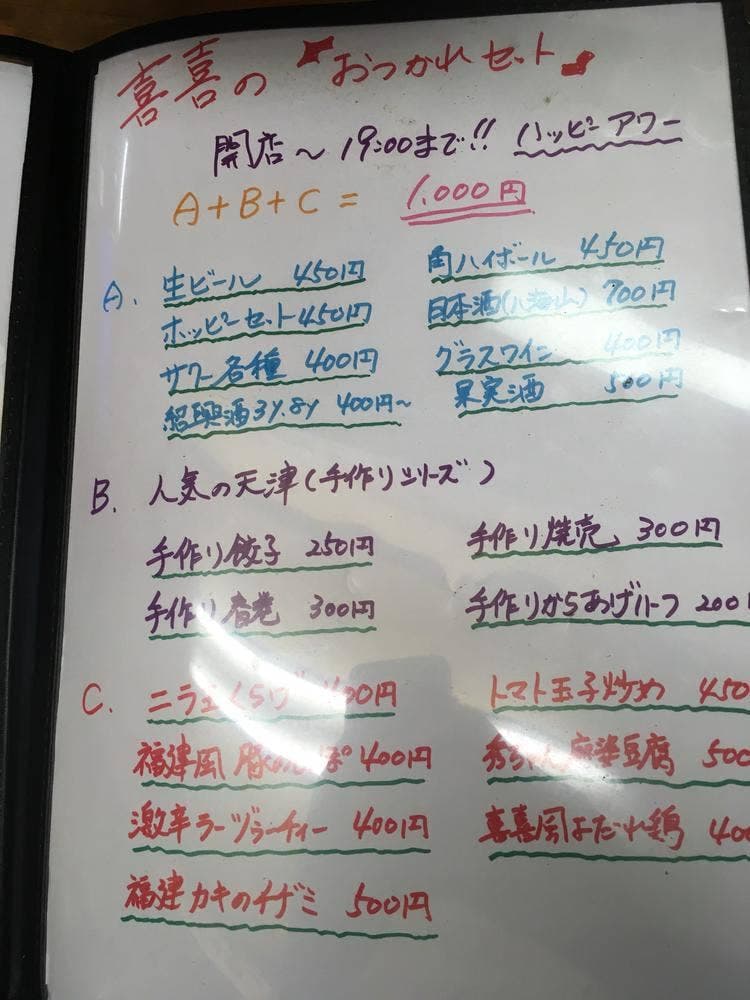 喜喜の『おつかれセット』
開店～19:00まで!! ハッピーアワー
A+B+C= 1,000円
A. 生ビール 450円 角ハイボール 450円
ホッピーセット 450円 日本酒(八海山) 700円
サワー各種 400円 グラスワイン 400円
紹興酒3y.8y 400円～ 果実酒 500円
B. 人気の天津(手作りシリーズ)
手作り餃子 250円 手作り焼売 300円
手作り春巻 300円 手作りからあげハーフ 200
C. ニラ 400円 トマト玉子炒め 450
福建風豚の 400円 秀ちゃん麻婆豆腐 500
激辛ラーヅラーティー 400円 喜喜風よだれ鶏 400
福建カキのイザミ 500円